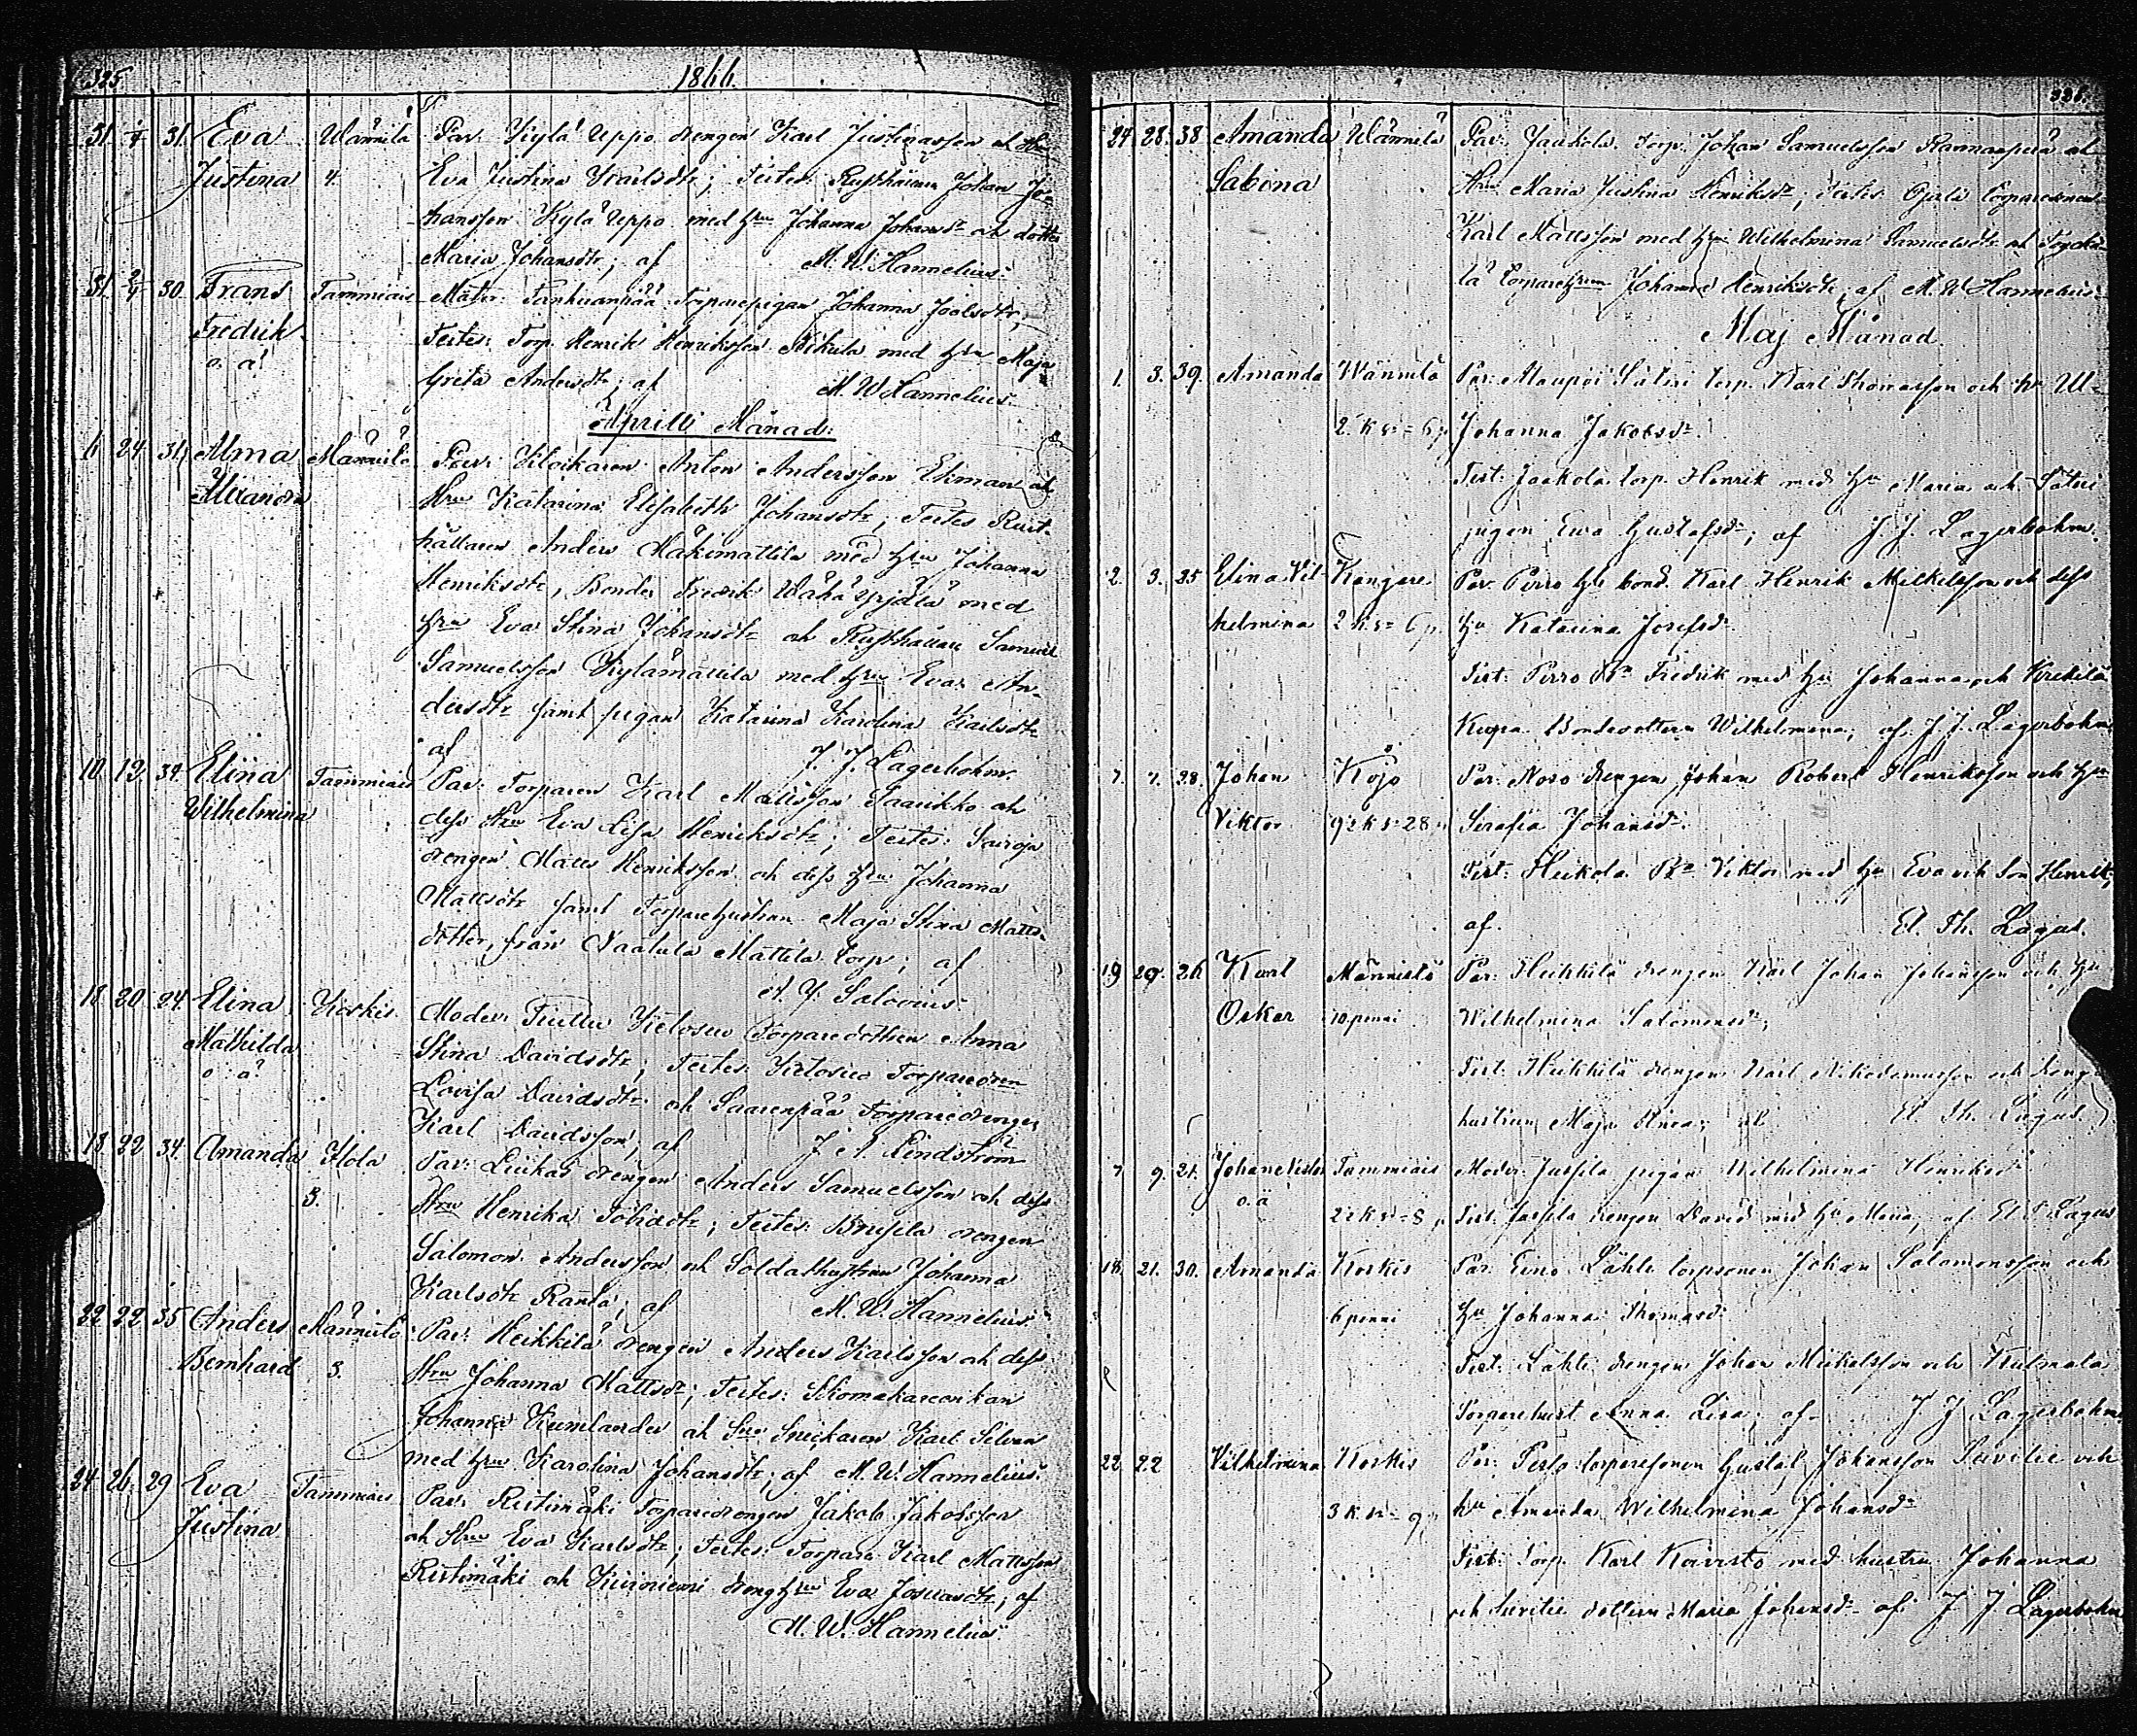 325
1866.
31 1/4 31. Eva Wännilä Par: Kylä Uppo drengen Karl Justinasson och Hru
Justina 4. Eva Justina Karlsdtr; Testes: Rusthållaren Johan Jo-
hansson Kylä Uppo med Hru Johanna Johansdr och dotter
Maria Johansdtr; af M. W. Hannelius
31. 2/4 30. Frans Tammiais Mater: Tanhuanpää Torparepigan Johanna Joelsdtr;
Fredrik Testes: Torp. Henrik Henriksson Nikula med Hru Maja
o. ä! Greta Andersdtr; af M. W. Hannelius
Aprilli Månad:
6 24 31 Alma Männistö Par: Anton Andersson Ekman och
Alexandra Hru Katarina Elisabeth Johansdtr; Testes Rust-
hållaren Anders Mäkimattila med Hru Johanna
Henriksdtr, Bonden Fredrik Wähä Yrjälä med
Hru Eva Stina Johansdtr och Rusthållare Samuel
Samuelsson Kylämattila med Hru Eva An-
dersdtr samt pigan Katarina Karolina Karlsdtr
af J. J. Lagerbohm.
10 12 39. Elina Tammiais Par: Torparen Karl Mattsson Saarikko och
Wilhelmina dess Hru Eva Lisa Henriksdtr; Testes: Sairoja
drengen Matts Henriksson och dess Hru Johanna
Mattsdtr samt Torparehustrun Maja Stina Matts-
dotter, från Naatula Mattila torp; af
A. Y. Salovius
18 20 24. Elina Korkis Moder: Kietosuo Torparedottren Anna
Mathilda Stina Davidsdtr; Testes: Kietosuo Torparedren
o. ä! Lovisa Davidsdtr och Saarenpää Torparedrengen
Karl Davidsson; af J. A. Lindström
18 22 34. Amanda Ylola Par: Liukas drengen Anders Samuelsson och dess
3. Hru Henrika Tobiasdtr; Testes: Knusila drengen
Salomon Andersson och Soldathustrun Johanna
Karlsdtr Ranta; af M. W. Hannelius
22 22 35 Anders Männistö Par: Heikkilä drengen Anders Karlsson och dess
Bernhard 3. Hru Johanna Mattsdr; Testes: Skomakareenkan
Johanna Kumlander och Snickaren Karl Silvan
med Hru Karolina Johansdtr; af M. W. Hannelius
24 26 29 Eva Tammiais Par: Ristimäki Torparedrengen Jakob Jakobsson
Justina och Hru Eva Karlsdtr; Testes: Torpare Karl Mattsson
Ristimäki och Kiviniemi dreng Hru Eva Josuasdtr; af
M. W. Hannelius
326.
24 28. 38 Amanda Wännilä Par: Jaakola Torp. Johan Samuelsson Rannanperä och
Sabina Hru Maria Justina Henriksdr; Testes: Ojala
Karl Mattsson med Hru Wilhelmina Samuelsdtr och
lä Torparehrun Johanna Henriksdtr; af M. W. Hannelius
Maj Månad
1. 3. 39. Amanda Wännilä Par: Maunpoi Säteri torp. Karl Thomasson och hu Ul-
2 k s = 6 p Johanna Jakobsdr.
Test: Jaakola torp. Henrik med hu Maria och Säteri
pigan Ewa Gustafsdr; af J. J. Lagerbohm.
2. 3. 35 Elina Vil- Kangare Par: Pirro hs bond. Karl Henrik Mickelsson och dess
helmina 2 k s = 6 p hu Katarina Josefsdr
Test: Pirro Fredrik med hu Johanna och Kirkilä
Kupa Bondedottern Wilhelmina; af J. J. Lagerbohm
7. 7. 28. Johan Köjö Par: Noro drengen Johan Robert Henriksson och hu
Viktor 92 k s = 28 Serafia Johansdr.
Test: Heikola Viktor med hu Eva och Son Henrik;
af El. Th. Lagus.
19 20. 26 Karl Männistö Par: Heikkilä drengen Karl Johan Johansson och hu
Oskar 10 penni Wilhelmina Salomonsdr;
Test: Heikkilä drengen Karl Nikodemusson och dreng
hustrun Maja Stina; af El. Th. Lagus
7 9. 21. Johan Viktor Tammiais Moder: Jussila pigan Wilhelmina Henriksdr
o. ä 22 k s = 8 Test: Jussila drengen David med hu Maria; af El. T. Lagus
18 21. 30. Amanda Korkis Par: Eino Lähti torpsonen Johan Salomonsson och
6 penni hu Johanna Thomasdr
Test: Lähti drengen Johan Mickelsson och Kulmala
Torparehust Anna Lisa; af J. J. Lagerbohm
22 22 Vilhelmina Korkis Par: torparesonen Gustaf Johansson och
3 k s = 9 hu Amanda Wilhelmina Johansdr
Test: Torp. Karl Koivisto med hustru Johanna
och dottern Maria Johansdr af J. J. Lagerbohm